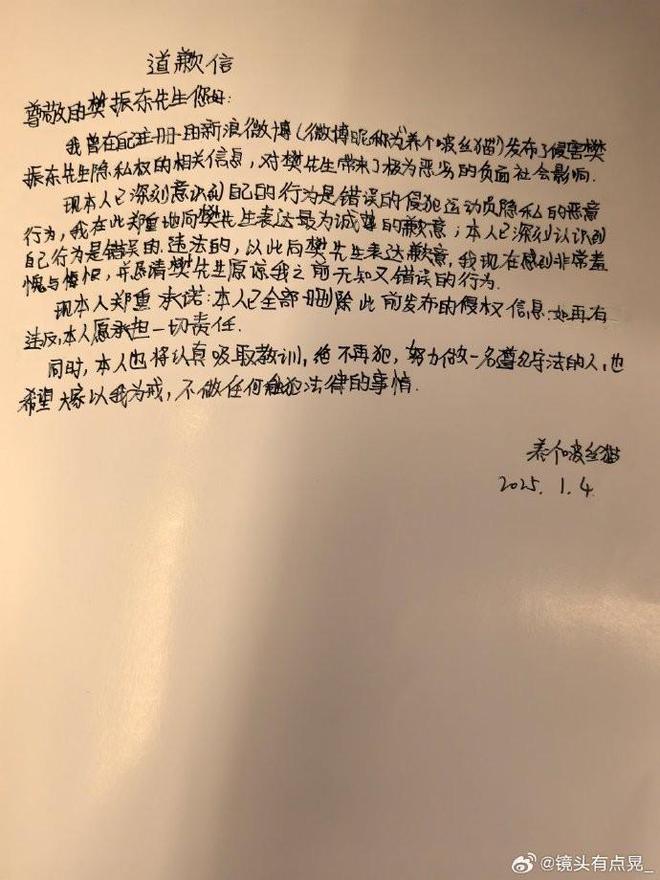 道歉信
尊敬的樊振东先生您好:
我曾在此注册的新浪微博(微博昵称为"养个啵丝猫")发布了侵害樊
振东先生隐私权的相关信息,对樊先生带来了极为恶劣的负面社会影响.
现本人已深刻意识到自己的行为是错误的侵犯运动员隐私的恶意
行为,我在此郑重地向樊先生表达最为诚挚的歉意;本人已深刻认识到
自己行为是错误的.违法的,以此向樊先生表达歉意,我现在感到非常羞
愧与悔恨,并恳请樊先生原谅我之前无知又错误的行为.
现本人郑重承诺:本人已全部删除此前发布的侵权信息.如再有
违反,本人愿承担一切责任.
同时,本人也将认真吸取教训,绝不再犯,努力做一名遵纪守法的人,也
希望大家以我为戒,不做任何触犯法律的事情.
养个啵丝猫
2025.1.4
@镜头有点晃_